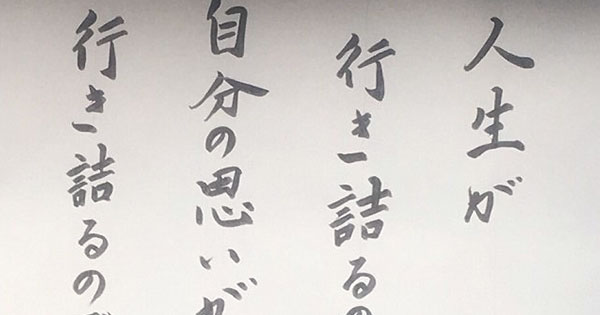 人生が
行き詰るの
自分の思いが
行き詰るので